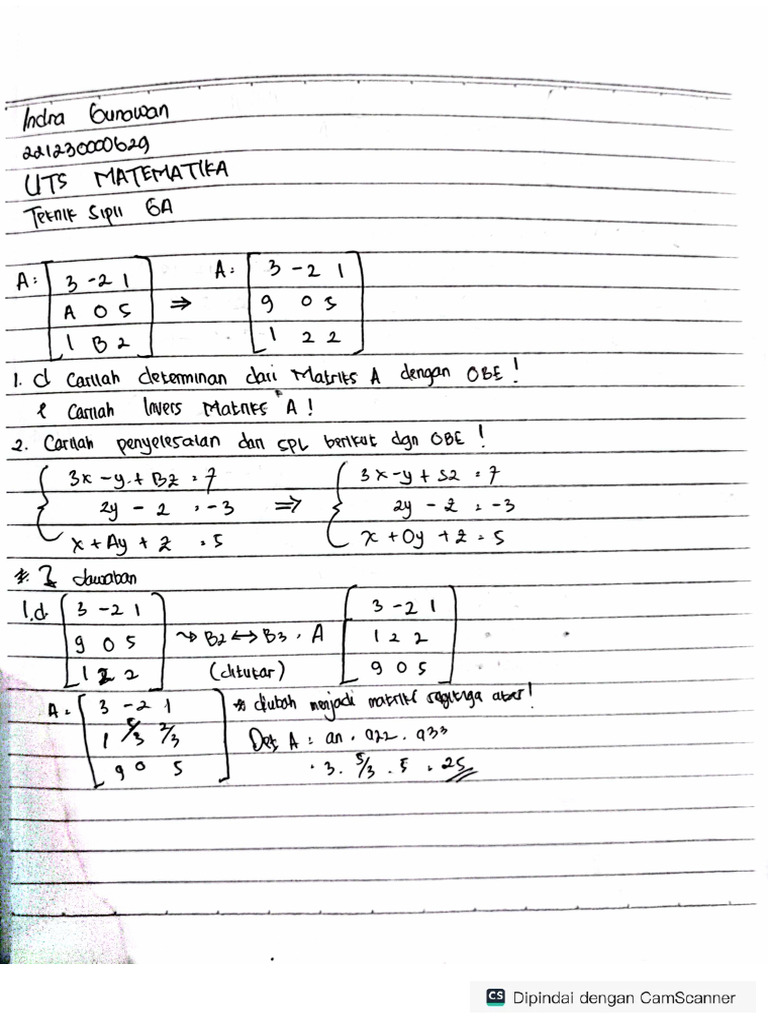 Indra Gunawan
221230000629
UTS MATEMATIKA
Teknik Sipil 6A
A = [ 3 -2 1 A = [ 3 -2 1
A 0 5 ⇒ 9 0 5
1 B 2 ] 1 2 2 ]
1. d Carilah determinan dari Matriks A dengan OBE !
e Carilah Invers Matriks A !
2. Carilah penyelesaian dari SPL berikut dgn OBE !
{ 3x - y + Bz = 7 { 3x - y + 5z = 7
2y - z = -3 ⇒ 2y - z = -3
x + Ay + z = 5 x + 0y + z = 5
* Jawaban
1.d [ 3 -2 1 [ 3 -2 1
9 0 5 ⤳ B2 ↔ B3 = A 1 2 2
1 2 2 ] (ditukar) 9 0 5 ]
A = [ 3 -2 1 * diubah menjadi matriks segitiga atas!
1 5/3 2/3 Det A = a11 . a22 . a33
9 0 5 ] = 3 . 5/3 . 5 = 25
CS Dipindai dengan CamScanner